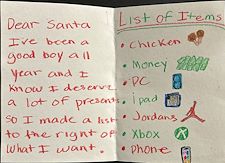 Dear Santa
I've been a
good boy all
year and I
know I deserve
a lot of presents
so I made a list
to the right of
what I want.
List of Items
• Chicken
• Money
• PC
• ipad
• Jordans
• Xbox
• Phone